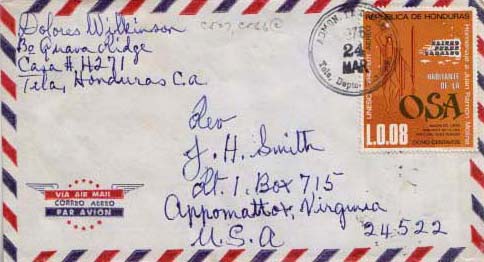 Dolores Wilkinson
Bo Guava Ridge
Casa # H271
Tela, Honduras C.a
24
MAR
REPUBLICA DE HONDURAS
Homenaje a Juan Ramon Molina
HABITANTE
DE LA
OSA
L.0.08
OCHO CENTAVOS
Rev
J. H. Smith
Rt. 1. Box 715
Appomattox, Virginia
24522
U.S.A
VIA AIR MAIL
CORREO AEREO
PAR AVION